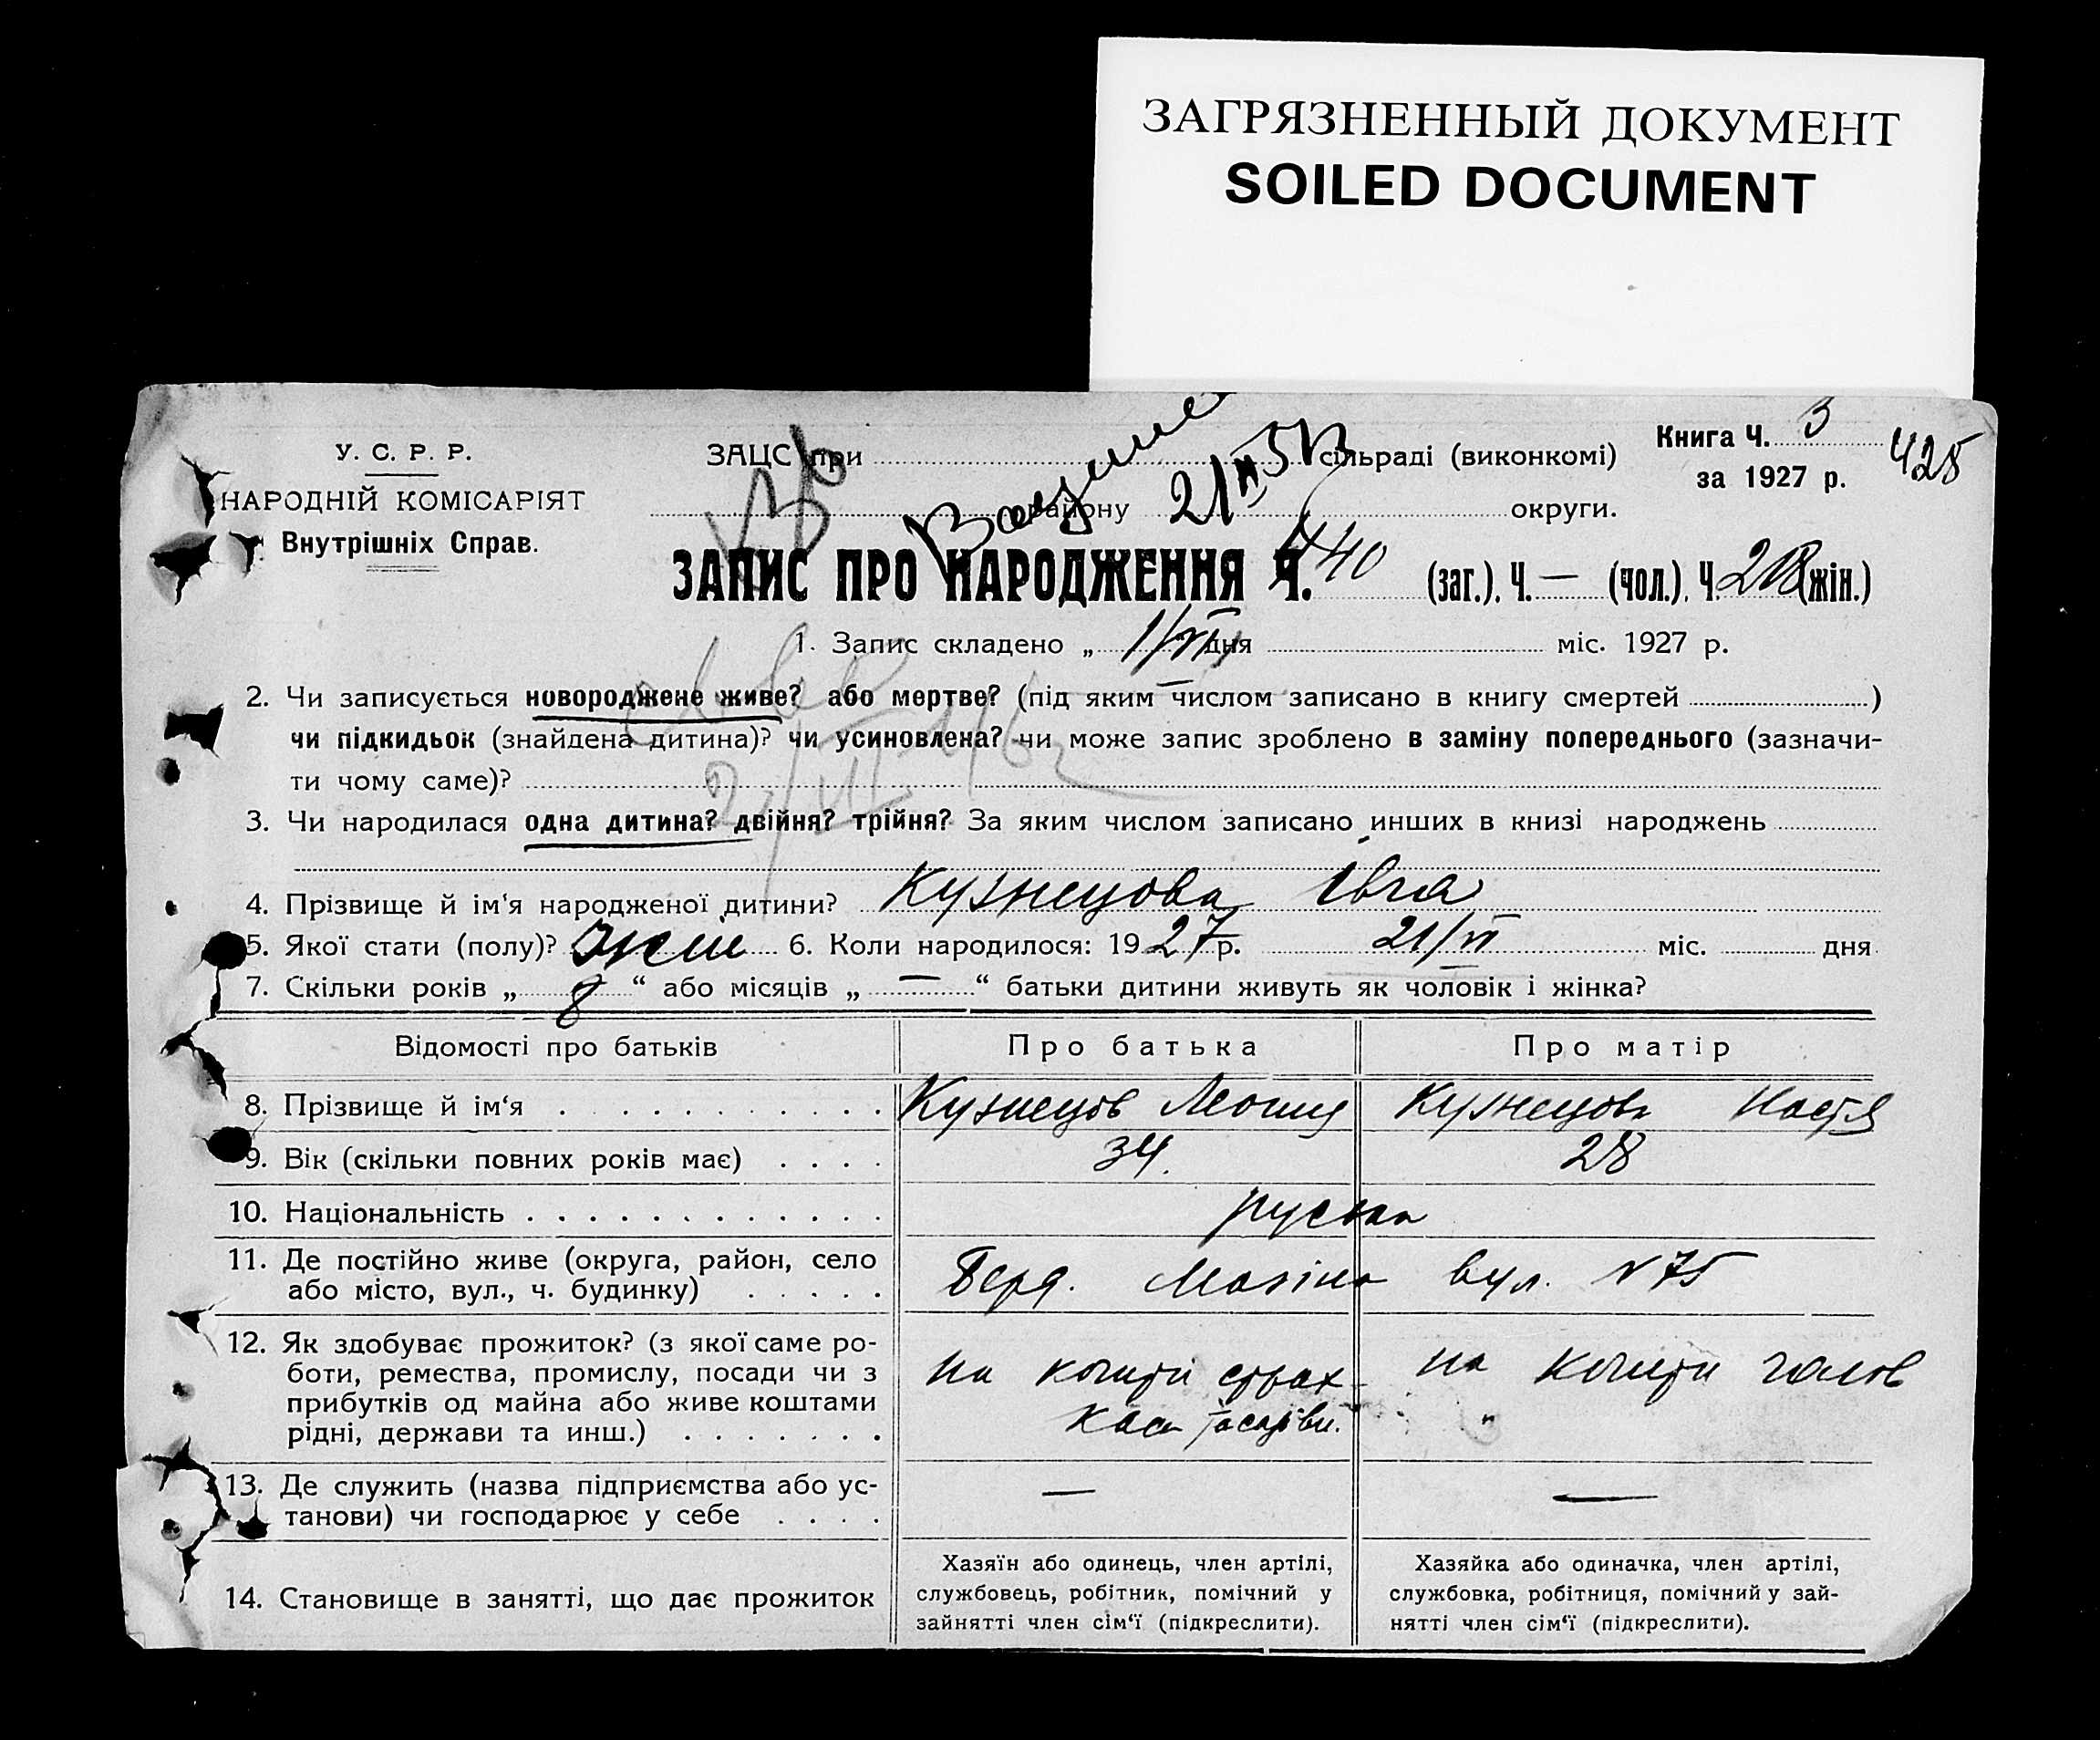 ЗАГРЯЗНЕННЫЙ ДОКУМЕНТ
SOILED DOCUMENT
У. С. Р. Р.
НАРОДНІЙ КОМІСАРІЯТ
Внутрішніх Справ.
ЗАЦС при сільраді (виконкомі)
району 21 округи.
Книга Ч. 3
за 1927 р.
428
ЗАПИС ПРО НАРОДЖЕННЯ Ч. 440 (заг.). Ч. — (чол.). Ч. 218 (жін.)
1. Запис складено „ 1/VII дня міс. 1927 р.
2. Чи записується новороджене живе? або мертве? (під яким числом записано в книгу смертей )
чи підкидьок (знайдена дитина)? чи усиновлена? чи може запис зроблено в заміну попереднього (зазначи-
ти чому саме)?
3. Чи народилася одна дитина? двійня? трійня? За яким числом записано инших в книзі народжень
4. Прізвище й ім‘я народженої дитини? Кузнецова Євга
5. Якої стати (полу)? жін 6. Коли народилося: 1927 р. 21/VI міс. дня
7. Скільки років „ 8 “ або місяців „ — “ батьки дитини живуть як чоловік і жінка?
Відомості про батьків Про батька Про матір
8. Прізвище й ім‘я Кузнецов Леонид Кузнецова Настя
9. Вік (скільки повних років має) 34. 28
10. Національність руська
11. Де постійно живе (округа, район, село
або місто, вул., ч. будинку)
Берд. Мазіна вул. № 75
12. Як здобуває прожиток? (з якої саме ро-
боти, ремества, промислу, посади чи з
прибутків од майна або живе коштами
рідні, держави та инш.)
на кошти страх
каси
на кошти чолов
13. Де служить (назва підприємства або ус-
танови) чи господарює у себе
— —
14. Становище в занятті, що дає прожиток
Хазяїн або одинець, член артілі,
службовець, робітник, помічний у
зайнятті член сім‘ї (підкреслити).
Хазяйка або одиначка, член артілі,
службовка, робітниця, помічний у зай-
нятті член сім‘ї (підкреслити).